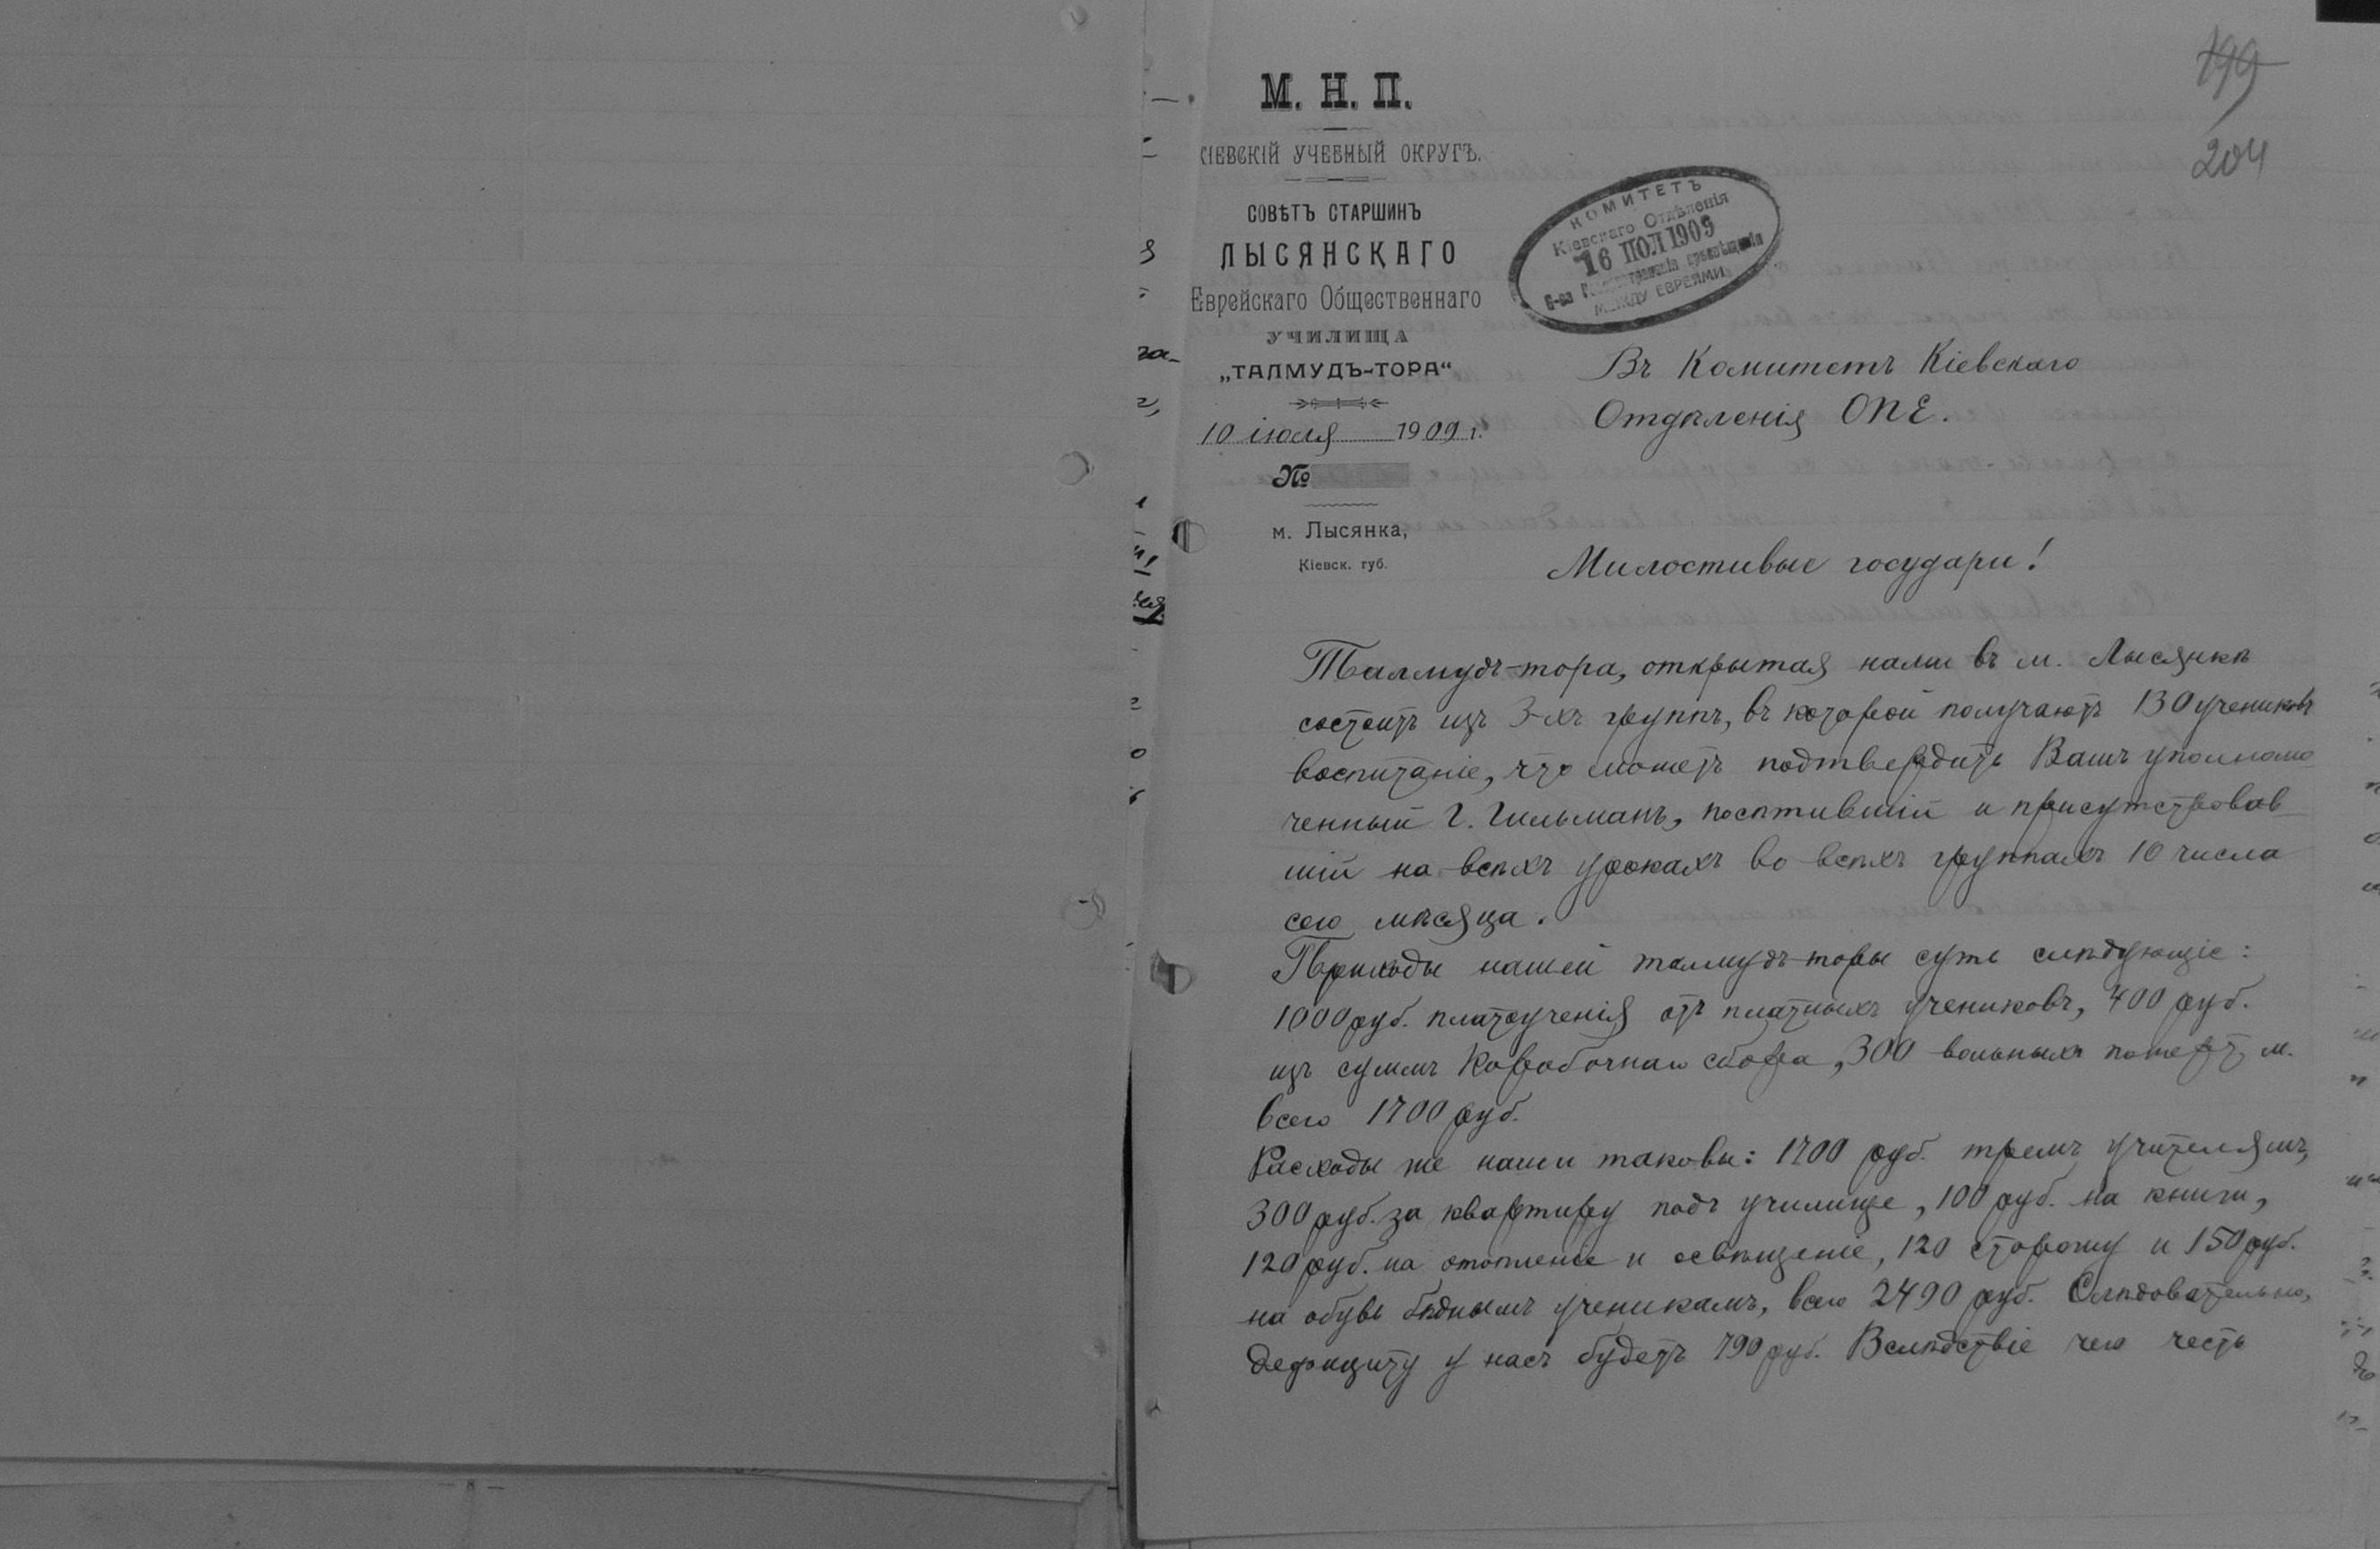 199
204
М. Н. П.
КІЕВСКІЙ УЧЕБНЫЙ ОКРУГЪ.
СОВѢТЪ СТАРШИНЪ
ЛЫСЯНСКАГО
Еврейскаго Общественнаго
УЧИЛИЩА
„ТАЛМУДЪ-ТОРА“
10 іюля 1909 г.
№
м. Лысянка,
Кіевск. губ.
КОМИТЕТЪ
Кіевскаго Отдѣленія
16 ІЮЛ 1909
О-ва просвѣщенія
МЕЖДУ ЕВРЕЯМИ
Въ Комитетъ Кіевскаго
Отдѣленія ОПЕ.
Милостивые государи!
Талмудъ-тора, открытая нами въ м. Лысянкѣ
состоитъ изъ 3-хъ группъ, въ которой получаютъ 130 учениковъ
воспитаніе, что можетъ подтвердить Вашъ уполномо
ченный Г. Гильманъ, посѣтившій и присутствовав
шій на всѣхъ урокахъ во всѣхъ группахъ 10 числа
сего мѣсяца.
Приходы нашей талмудъ-торы суть слѣдующіе:
1000 руб. платоученія отъ платныхъ учениковъ, 400 руб.
изъ суммъ Коробочнаго сбора, 300 вольныхъ пожерт, м.
всего 1700 руб.
Расходы же наши таковы: 1700 руб. тремъ учителямъ,
300 руб. за квартиру подъ училище, 100 руб. на книги,
120 руб. на отопленіе и освѣщеніе, 120 сторожу и 150 руб.
на обувь бѣднымъ ученикамъ, всего 2490 руб. Слѣдовательно,
дефициту у насъ будетъ 790 руб. Вслѣдствіе чего честь